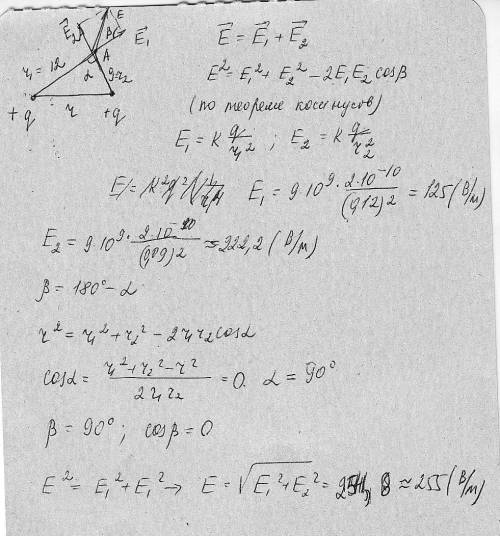 E
E⃗₂ B E⃗₁
r₁ = 12 A
α 9=r₂
+q r +q
E⃗ = E⃗₁ + E⃗₂
E² = E₁² + E₂² − 2E₁E₂ cosβ
(по теореме косинусов)
E₁ = K q/r₁² ; E₂ = K q/r₂²
E₁ = 9·10⁹ · 2·10⁻¹⁰/(0,12)² = 125 (В/м)
E₂ = 9·10⁹ · 2·10⁻¹⁰/(0,09)² ≈ 222,2 (В/м)
β = 180° − α
r² = r₁² + r₂² − 2r₁r₂ cosα
cosα = (r₁² + r₂² − r²)/(2r₁r₂) = 0. α = 90°
β = 90° ; cosβ = 0
E² = E₁² + E₁² → E = √(E₁² + E₂²) = 254, 8 ≈ 255 (В/м)